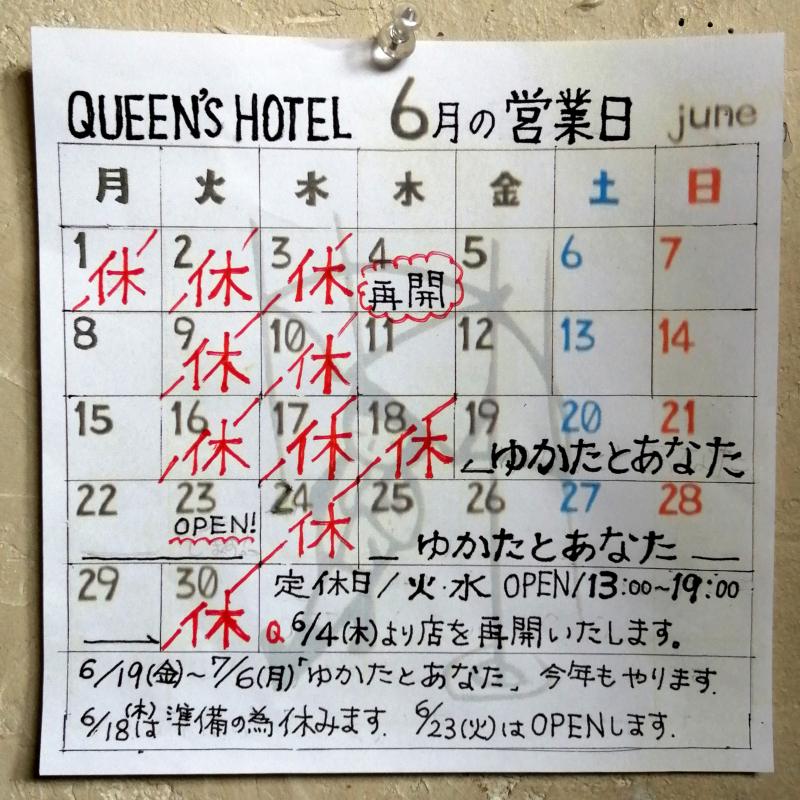 QUEEN'S HOTEL 6月の営業日 june
月 火 水 木 金 土 日
1 休 2 休 3 休 4 再開 5 6 7
8 9 休 10 休 11 12 13 14
15 16 休 17 休 18 休 19 20 21
ゆかたとあなた
22 23 24 休 25 26 27 28
OPEN! ゆかたとあなた
29 30 休 定休日/火・水 OPEN/13:00~19:00
Q 6/4(木)より店を再開いたします。
6/19(金)~7/6(月)「ゆかたとあなた」今年もやります.
6/18(木)は準備の為休みます. 6/23(火)はOPENします.